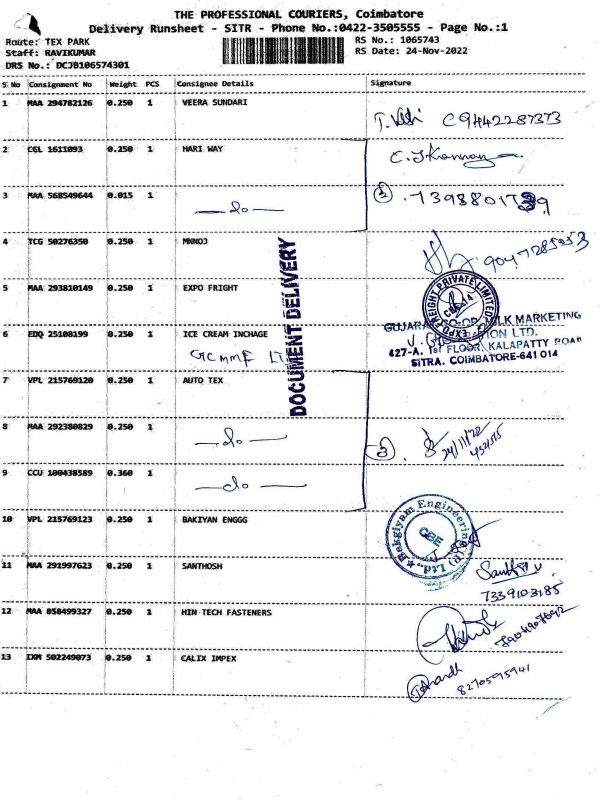 THE PROFESSIONAL COURIERS, Coimbatore
Delivery Runsheet - SITR - Phone No.:0422-3505555 - Page No.:1
Route: TEX PARK
RS No.: 1065743
Staff: RAVIKUMAR
RS Date: 24-Nov-2022
DRS No.: DCJB106574301
S No Consignment No Weight PCS Consignee Details Signature
1 MAA 294782126 0.250 1 VEERA SUNDARI
2 CGL 1611093 0.250 1 HARI WAY
3 MAA 568549644 0.015 1 —do—
4 TCG 50276350 0.250 1 MNNOJ
DOCUMENT DELIVERY
5 MAA 293810149 0.250 1 EXPO FRIGHT
EXPO FREIGHT PRIVATE LIMITED
6 EDQ 25108199 0.250 1 ICE CREAM INCHAGE
GCMMF
MILK MARKETING
LTD.
427-A, 1st FLOOR, KALAPATTY ROAD
SITRA. COIMBATORE-641 014
7 VPL 215769120 0.250 1 AUTO TEX
8 MAA 292380829 0.250 1 —do—
3
24/11/22
9 CCU 100438589 0.360 1 —do—
10 VPL 215769123 0.250 1 BAKIYAN ENGGG
Bakgiyam Engineering (P) Ltd.,
CBE
11 MAA 291997623 0.250 1 SANTHOSH
7339103185
12 MAA 858499327 0.250 1 HIN TECH FASTENERS
13 IXM 502249073 0.250 1 CALIX IMPEX
8270595941